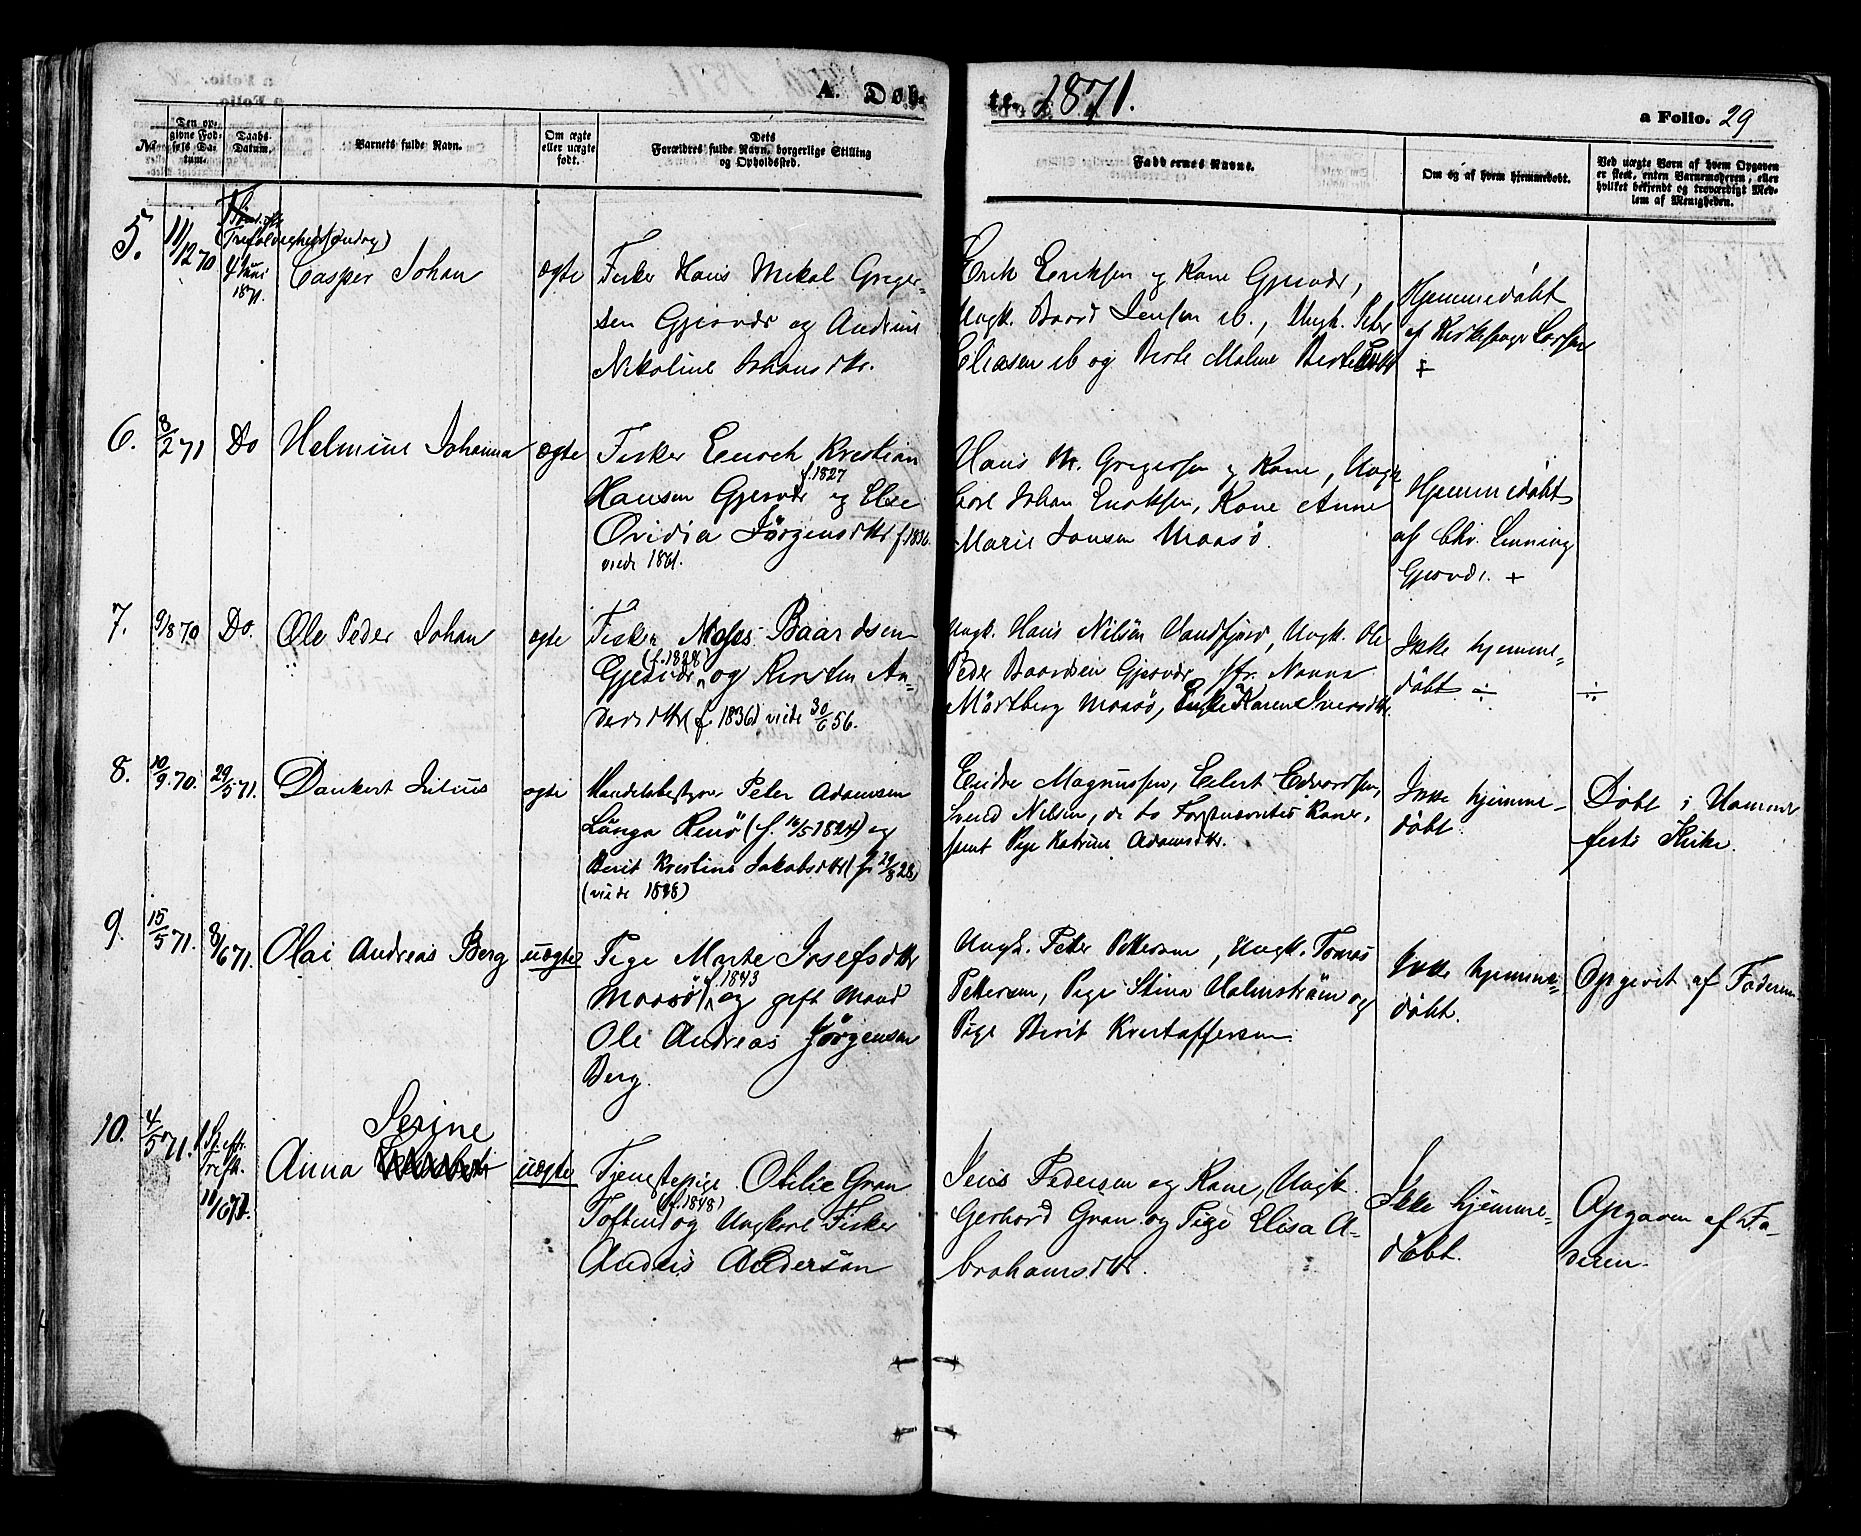 A. Døb- te. 1871.
a Folio. 29
No.
Den op-
givne Fød-
sels Da-
tum.
Daabs-
Datum.
Barnets fulde Navn.
Om ægte
eller uægte
født.
Dets
Forældres fulde Navn, borgerlige Stilling
og Opholdssted.
Faddernes Navne.
Om og af hvem hjemmedøbt.
Ved uægte Børn af hvem Opgaven
er skeet, enten Barnemoderen, eller
hvilket bekjendt og troværdigt Med-
lem af Menigheden.
5.
11/12 70
(Trefoldighedssøndag)
4 Juni
1871.
Casper Johan
ægte
Fisker Hans Mikal Greger-
sen Gjesvær og Andrine
Nikoline Johansdtr.
Erik Eriksen og Kone Gjesvær,
Ungk. Baard Jensen ib., Ungk. Peter
Eliasen ib og Berte Maline
Hjemmedøbt
af Kirkesanger Larsen
÷
6.
8/2 71
Do
Helmine Johanna
ægte
Fisker Enoch Kristian
f. 1827
Hansen Gjesvær og Else
Ovidia Jørgensdtr f. 1836.
viede 1861.
Hans M. Gregersen og Kone, Ungk
Carl Johan Enoksen, Kone Anne
Marie Jonsen Maasø.
Hjemmedøbt
af Chr. Lenning
Gjesvær. +
7.
9/8 70
Do.
Ole Peder Johan
ægte
Fisker Moses Baardsen
(f. 1828)
Gjesvær og Kirsten An-
dersdtr (f. 1836) viede 30/6 56.
Ungk. Hans Nilsen Vandfjord, Ungk. Ole
Peder Baardsen Gjesvær, Nanna
Mörtberg Maasø, Enke Karen Iversdtr.
Ikke hjemme-
døbt ÷
÷
8.
10/9 70.
29/5 71.
Dankert Julius
ægte
Handelsbestyrer Peter Adamsen
Länga Renø (f. 16/5 1824) og
Berit Kristine Jakobsdtr (f. 29/8 28)
(viede 1848)
Endre Magnussen, Eilert Edvardsen,
Svend Nilsen, de to Førstnævntes Koner,
samt Pige Katrine Adamsdtr.
Ikke hjemme-
døbt.
Døbt i Hammer
fests Kirke.
9.
15/5 71.
8/6 71.
Olai Andreas Berg
uægte
Pige Marte Josefsdtr
f. 1843
Maasø og gift Mand
Ole Andreas Jørgensen
Berg.
Ungk. Peter Pettersen, Ungk. Tomas
Pettersen, Pige Stina Holmström og
Pige Berit Kristoffersen.
Ikke hjemme-
døbt.
Opgivet af Faderen
10.
4/5 71.
1 S. eft.
Trefh.
11/6 71.
Serine
Anna
uægte
Tjenestepige Otelie Gran
(f. 1848)
Toften og Ungkarl Fisker
Andreis Andersen
Jens Pedersen og Kone, Ungk.
Gerhard Gran og Pige Elisa A-
brahamsdtr.
Ikke hjemme-
døbt.
Opgaven af Fa-
deren.